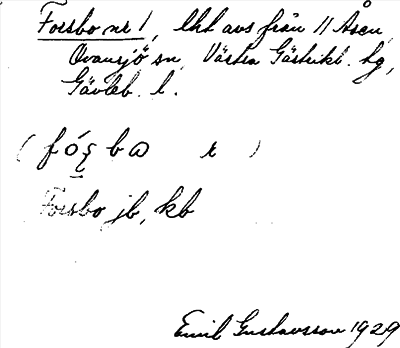 Forsbo nr 1, lht avs från 11 Åsen,
Ovansjö sn, Västra Gästrikl. hg,
Gävleb. l.
( fóʂbɷ r )
Forsbo jb, kb
Emil Gustavsson 1929